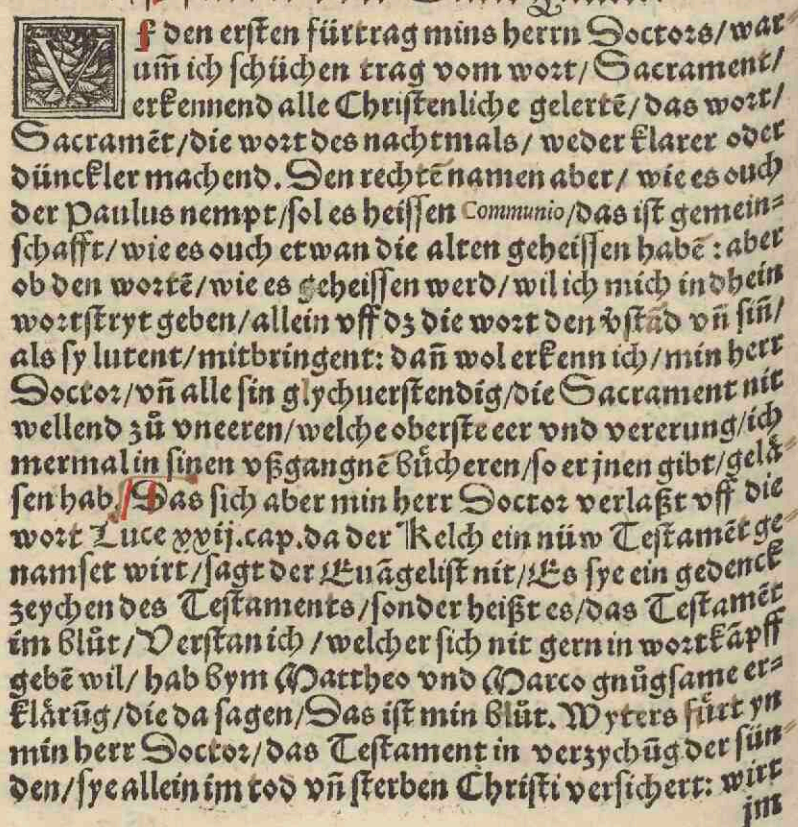 Vf den ersten fürtrag mins herrn Doctors/ war⸗
um̃ ich schüchen trag vom wort/ Sacrament/
erkennend alle Christenliche gelertē/ das wort/
Sacramēt/ die wort des nachtmals/ weder klarer oder
dünckler machend. Den rechtē namen aber/ wie es ouch
der Paulus nempt/ sol es heissen Communio/ das ist gemein⸗
schafft/ wie es ouch etwan die alten geheissen habē: aber
ob den wortē/ wie es geheissen werd/ wil ich mich in dhein
wortstryt geben/ allein vff dz die wort den v̄stād vn̄ sin̄/
als sy lutent/ mitbringent: dan̄ wol erkenn ich/ min herr
Doctor/ vn̄ alle sin glychuerstendig/ die Sacrament nit
wellend zů vneeren/ welche oberste eer vnd vererung/ ich
mermal in sinen vßgangnē bůcheren/ so er jnen gibt/ gelä⸗
sen hab/ Das sich aber min herr Doctor verlaßt vff die
wort Luce xxij. cap. da der Kelch ein nüw Testamēt ge⸗
namset wirt/ sagt der Euāgelist nit/ Es sye ein gedenck
zeychen des Testaments/ sonder heißt es/ das Testamēt
im blůt/ Verstan ich/ welcher sich nit gern in wortkāpff
gebē wil/ hab bym Mattheo vnd Marco gnůgsame er⸗
klärūg/ die da sagen/ Das ist min blůt. Wyters fürt yn
min herr Doctor/ das Testament in verzychūg der sün⸗
den/ sye allein im tod vn̄ sterben Christi versichert: wirt
im